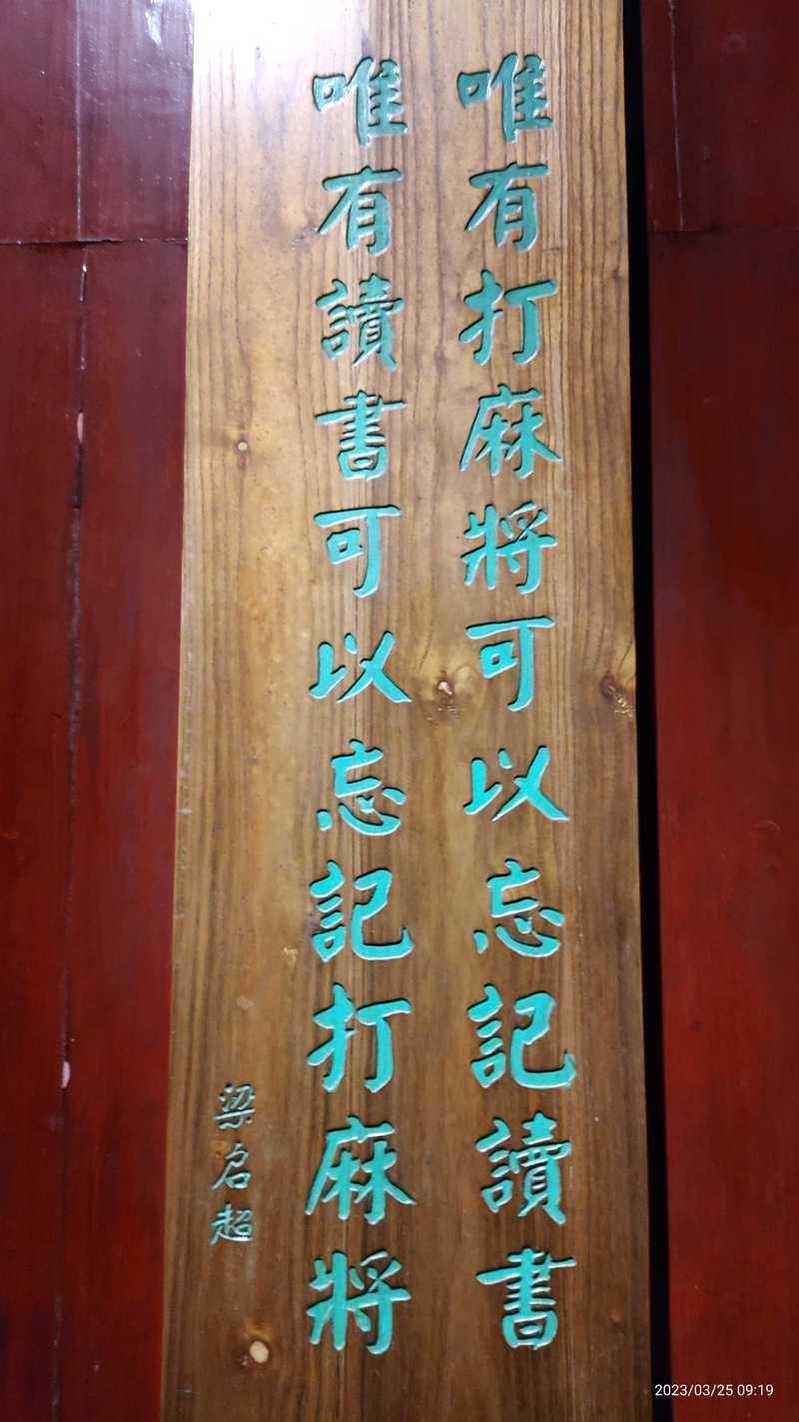 唯有打麻將可以忘記讀書
唯有讀書可以忘記打麻將
梁启超
2023/03/25 09:19